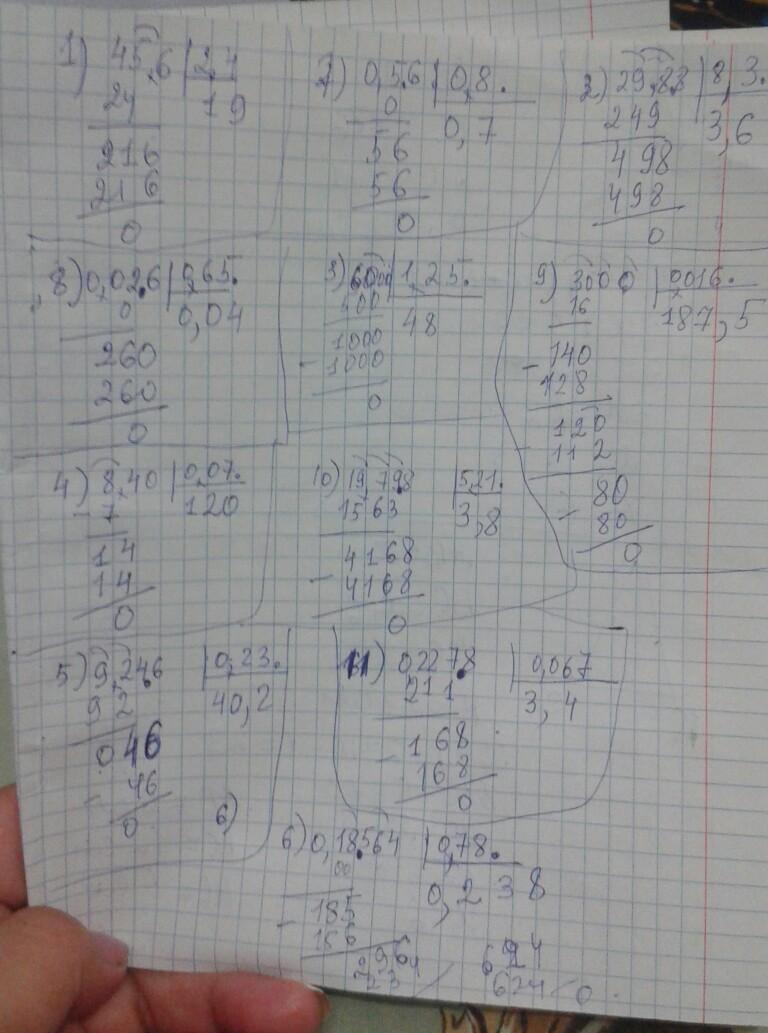 1) 45,6 | 2,4
24 19
216
216
0
2) 0,5.6 | 0,8.
0 0,7
56
56
0
2) 29,8.8 | 8,3.
249 3,6
498
498
0
8) 0,02.6 | 0,65.
0 0,04
260
260
0
3) 6000 | 1,25.
500 48
1000
- 1000
0
9) 3000 | 0,016.
16 187,5
- 140
128
120
112
80
- 80
0
4) 8,40 | 0,07.
- 7 120
14
14
0
10) 19,79.8 | 5,21.
1563 3,8
4168
- 4168
0
5) 9,24.6 | 0,23.
92 40,2
046
- 46
0
6)
11) 0,227.8 | 0,067
211 3,4
168
- 168
0
6) 0,18.564 | 0,78.
00 0,238
185
- 156
624
624 0